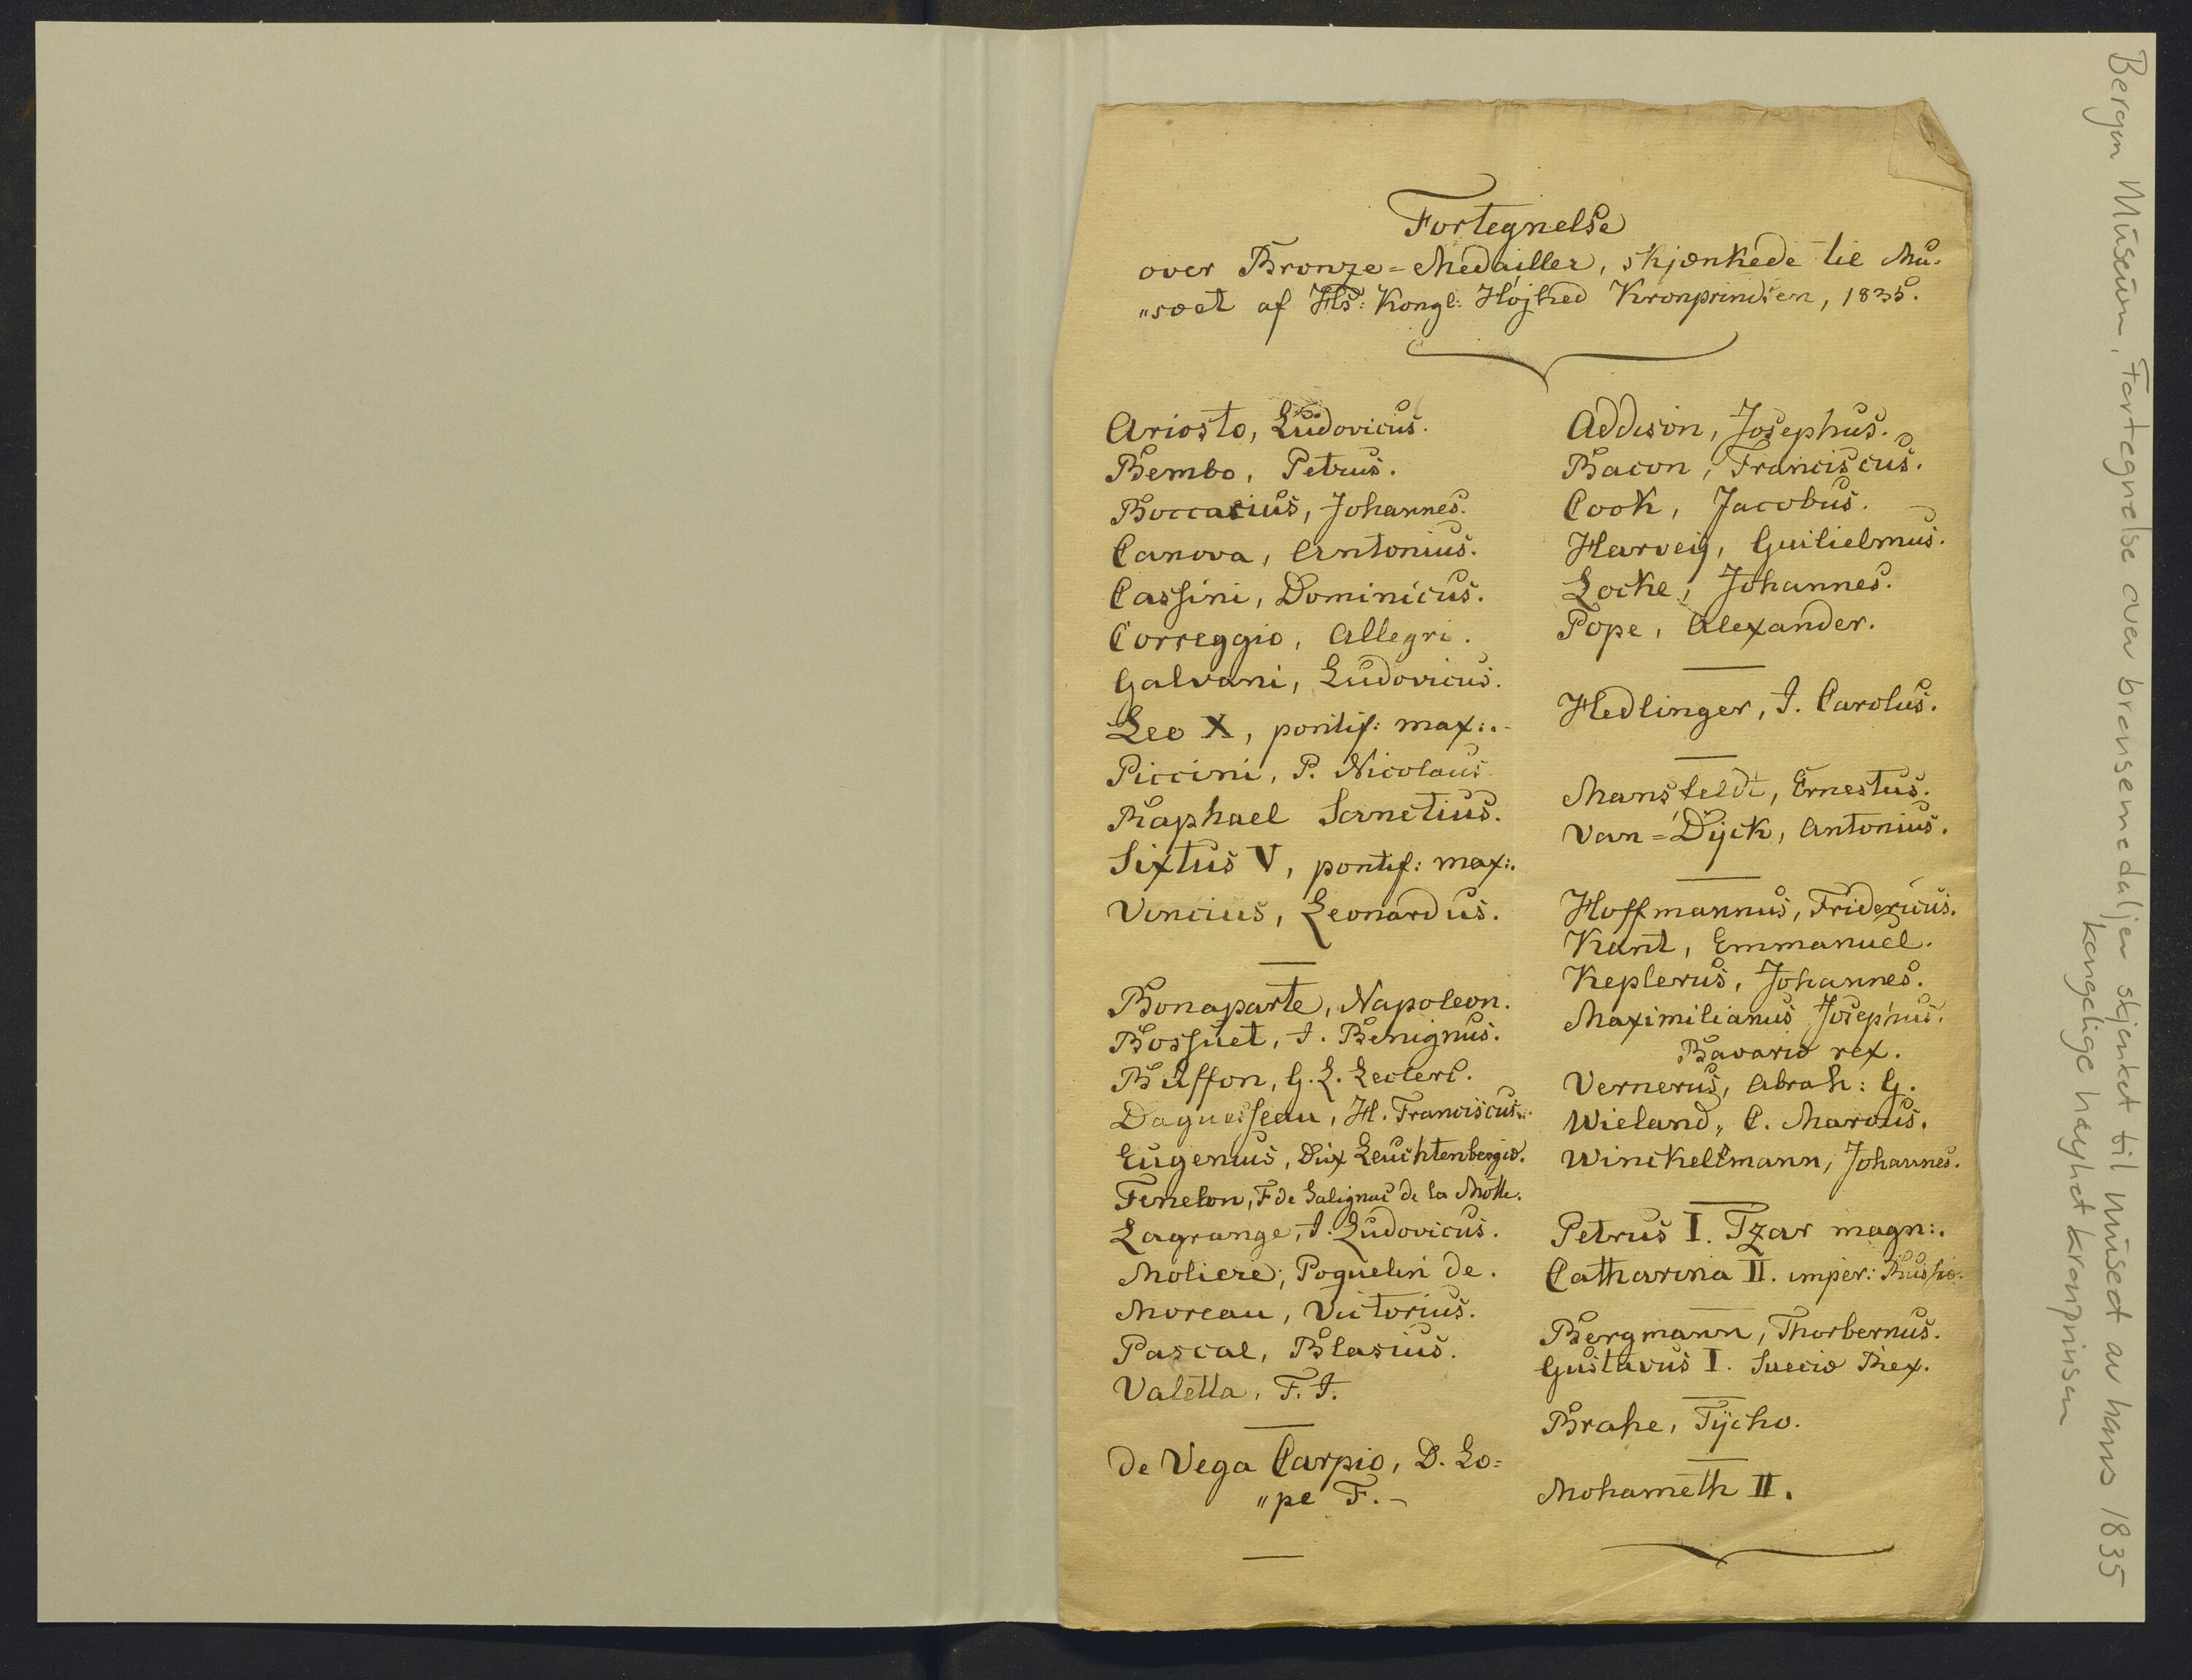 Fortegnelse
over Bronze=Medailler, skjænkede til Mu-
„sæet af Hs: Kongl: Højhed Kronprindsen, 1835.
Ariosto, Ludovicus.
Bembo, Petrus.
Boccacius, Johannes.
Canova, Antonius.
Cassini, Dominicus.
Correggio, Allegri.
Galvani, Ludovicus.
Leo X, pontif: max:.
Piccini, P. Nicolaus.
Raphael Sanctius.
Sixtus V, pontif: max:.
Vincius, Leonardus.
Bonaparte, Napoleon.
Bossuet, J. Benignus.
Buffon, G. L. Leclerc.
Daguesseau, H. Franciscus.
Eugenius, Dux Leuchtenbergiæ.
Fenelon, F de Salignac de la Motte.
Lagrange, J. Ludovicus.
Moliere, Poquelin de.
Moreau, Victorius.
Pascal, Blasius.
Valetta, F. J.
de Vega Carpio, D. Lo=
„pe F.-
Addison, Josephus.
Bacon, Franciscus.
Cook, Jacobus.
Harveij, Guilielmus.
Locke, Johannes.
Pope, Alexander.
Hedlinger, J. Carolus.
Mansfeldt, Ernestus.
Van=Dijck, Antonius.
Hoffmannus, Fridericus.
Kant, Emmanuel.
Keplerus, Johannes.
Maximilianus Josephus.
Bavariæ rex.
Vernerus, Abrah: G.
Wieland, C. Marous.
Winckellmann, Johannes.
Petrus I. Tzar magn:.
Catharina II. imper: Russiæ.
Bergmann, Thorbernus.
Gustavus I. Sueciæ Rex.
Brahe, Tÿcho.
Mohameth II.
Bergen Museum, Fortegnelse over bronsemedaljer skjenket til museet av hans 1835
kongelige høyhet kronprinsen